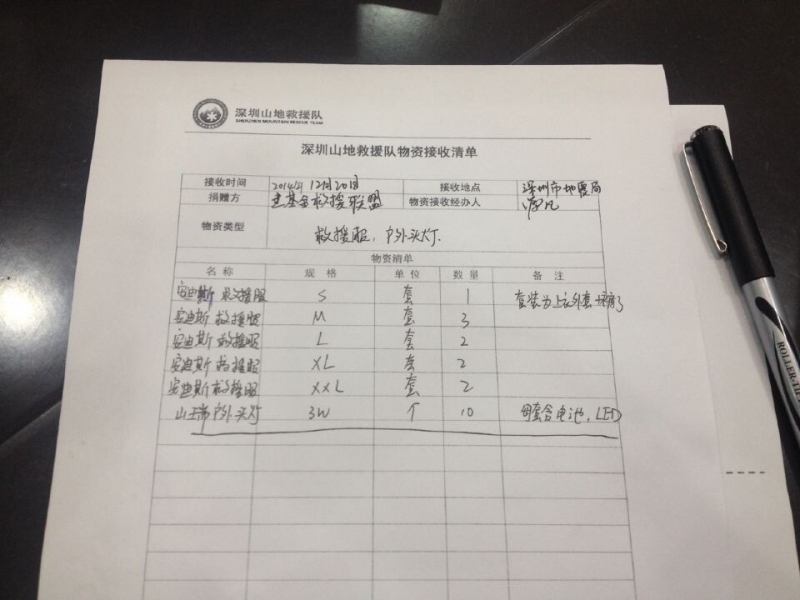 深圳山地救援队
SHENZHEN MOUNTAIN RESCUE TEAM
深圳山地救援队物资接收清单
接收时间 2014年12月20日 接收地点 深圳市地震局
捐赠方 基金救援联盟 物资接收经办人
物资类型 救援服、户外头灯.
物资清单
名称 规格 单位 数量 备注
安迪斯 救援服 S 套 1 套装为上衣外套
安迪斯 救援服 M 套 3
安迪斯 救援服 L 套 2
安迪斯 救援服 XL 套 2
安迪斯 救援服 XXL 套 2
户外头灯 3W 个 10 每套含电池, LED
ROLLER-TIP